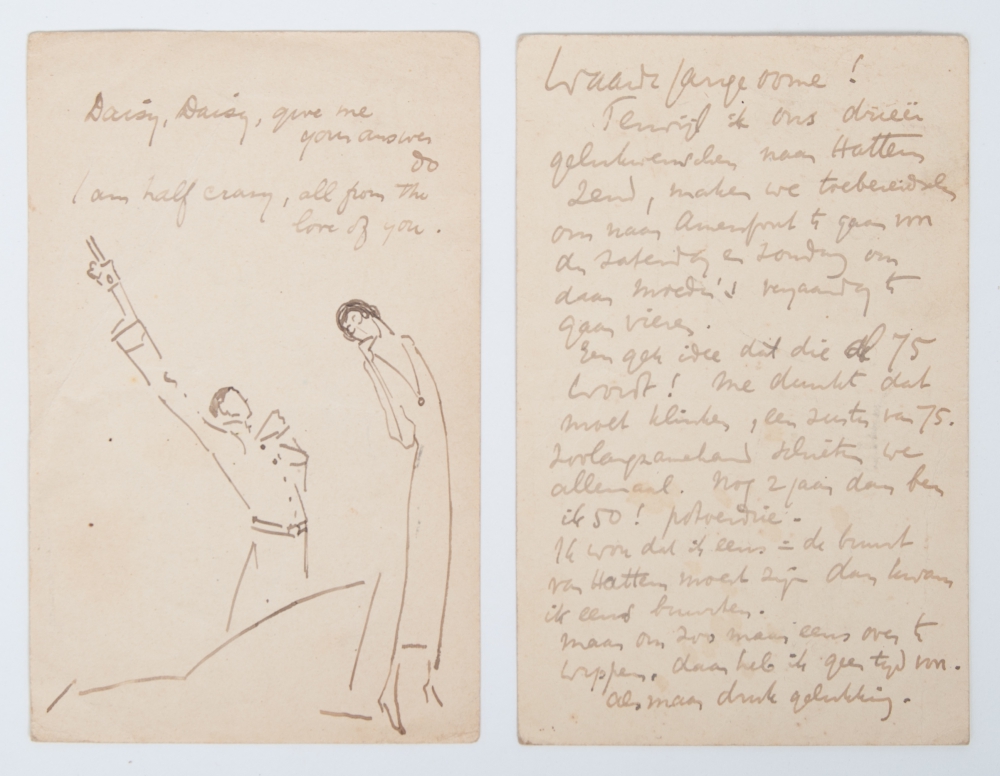 Daisy, Daisy, give me
your answer
do
I am half crazy, all from the
love of you.
Waarde Jarige oome!
Terwijl ik ons drieën
gelukwenschen naar Hattem
zend, maken we toebereidselen
om naar Amersfoort te gaan om
de Zaterdag en Zondag om
daar moeder's verjaardag te
gaan vieren.
Een gek idee dat die 75
wordt! me dunkt dat
moet klinken, een zuster van 75.
zoolangzamerhand schieten we
allemaal. Nog 2 jaar dan ben
ik 50! potverdrie.
Ik wou dat ik eens = de buurt
van Hattem moest zijn dan kwam
ik eens buurten.
maar om zoo maar eens over te
wippen, daar heb ik geen tijd voor.
als maar druk gelukkig.